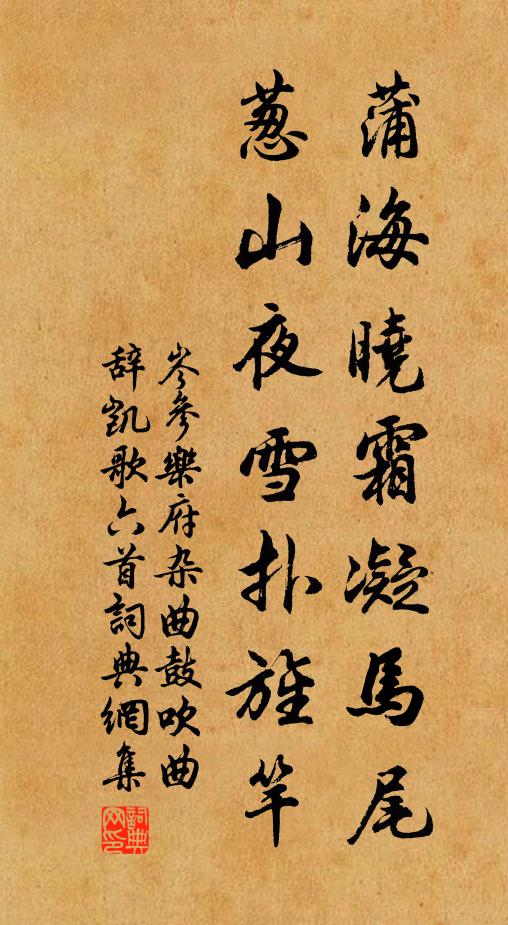 蒲海曉霜凝馬尾
葱山夜雪扑旌竿
岑參樂府杂曲鼓吹曲
辞凯歌六首詞典網集
詞典
网印